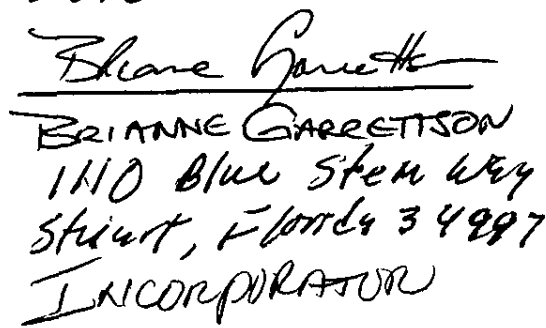 Brianne Garrettson
BRIANNE GARRETTSON
1110 Blue Stem Way
Stuart, Florida 34997
INCORPORATOR